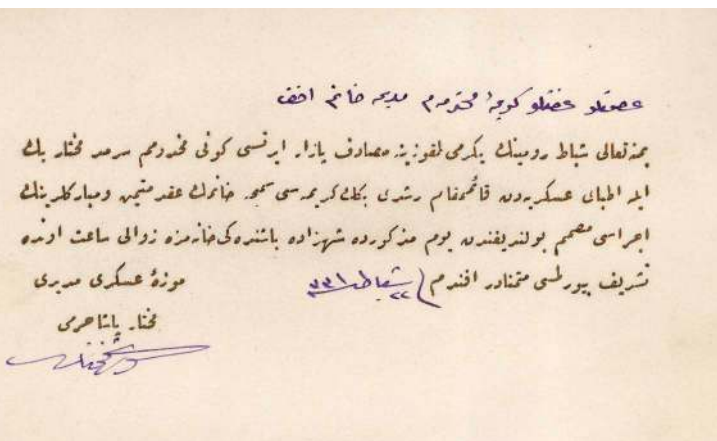 عصمتلو عفتلو كوچه‌ٔ محترمه‌م مديحه خانم افندی
بمنه تعالى شباط رومينك يكرمی طقوزينه مصادف پازار ايرتسی كونی مخدومم سرمد مختار بك
ايله اطبای عسكريه‌دن قائممقام رشدی بكك كريمه سی سميحه خانمك عقد متيمن ومباركلرينك
اجراسی مصمم بولنديغندن يوم مذكورده شهزاده باشنده كی خانه مزه زوالی ساعت اونده
تشريف بيورلمسی متمنادر افندم ٢٢ شباط ٣٣١
موزهٔ عسكری مديری
مختار پاشا حرمی